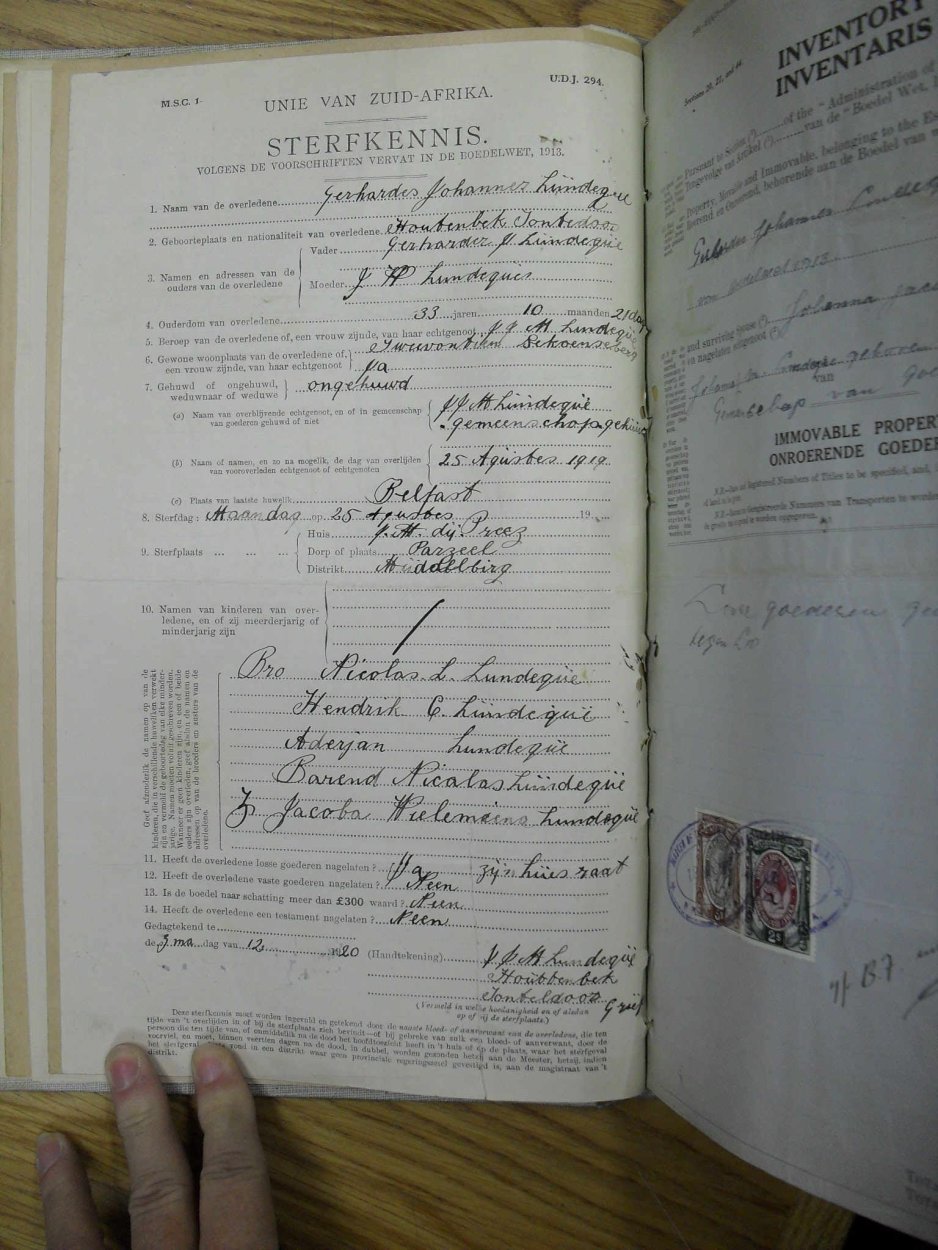 M.S.C. 1-
U.D.J. 294.
UNIE VAN ZUID-AFRIKA.
STERFKENNIS.
VOLGENS DE VOORSCHRIFTEN VERVAT IN DE BOEDELWET, 1913.
1. Naam van de overledene Gerhardes Johannes Lündeque
2. Geboorteplaats en nationaliteit van overledene. Houtenbek
3. Namen en adressen van de ouders van de overledene
Vader Gerhardes J Lündeqüe
Moeder J H Lundeqües
4. Ouderdom van overledene 33 jaren 10 maanden 21 dag
5. Beroep van de overledene of, een vrouw zijnde, van haar echtgenoot J J M Lindeqüe
6. Gewone woonplaats van de overledene of, een vrouw zijnde, van haar echtgenoot
7. Gehuwd of ongehuwd, weduwnaar of weduwe Ja
ongehuwd
(a) Naam van overblijvende echtgenoot, en of in gemeenschap van goederen gehuwd of niet J J M Lündeqüe
gemeenschap gehüwd
(b) Naam of namen, en zo na mogelik, de dag van overlijden van vooroverleden echtgenoot of echtgenoten 25 Agüstes 1919
(c) Plaats van laatste huwelik Belfast
8. Sterfdag: Maandag op 25 Agüstes 19
9. Sterfplaats ... ... ...
Huis J. M. dü Preez
Dorp of plaats Parzeel
Distrikt Middelbirg
10. Namen van kinderen van overledene, en of zij meerderjarig of minderjarig zijn
Geef afzonderlik de namen op van de kinderen, die in verschillende huweliken verwekt zijn en vermeld de geboortedag van elke minderjarige. Namen moeten voluit geschreven worden. Wanneer er geen kinderen zijn, en een of beide ouders zijn overleden, geef alsdan de namen en adressen op van de broeders en zusters van de overledene.
Bro Nicolas L. Lundeqüe
Hendrik C. Lündeqüe
Aderjan Lundeqüe
Barend Nicalas Lündeqüe
Z Jacoba Wielemiens Lundeqüe
11. Heeft de overledene losse goederen nagelaten? Ja zijn hües raat
12. Heeft de overledene vaste goederen nagelaten? Neen
13. Is de boedel naar schatting meer dan £300 waard? Neen
14. Heeft de overledene een testament nagelaten? Neen
Gedagtekend te
de 3 ma dag van 12 1920 (Handtekening) J J M Lundeqüe
Houtbenbek
Tonteldoos
(Vermeld in welke hoedanigheid en of alsdan op of bij de sterfplaats.)
Deze sterfkennis moet worden ingevuld en getekend door de naaste bloed- of aanverwant van de overledene, die ten
tijde van 't overlijden in of bij de sterfplaats zich bevindt—of bij gebreke van zulk een bloed- of aanverwant, door de
persoon die ten tijde van, of onmiddellik na de dood het hoofdtoezicht heeft in 't huis of op de plaats, waar het sterfgeval
voorviel, en moet, binnen veertien dagen na de dood, in dubbel, worden gezonden hetzij aan de Meester, hetzij, indien
het sterfgeval plaats vond in een distrikt waar geen provinciale regeringszetel gevestigd is, aan de magistraat van 't
distrikt.
INVENTORY
INVENTARIS
Sections 20, 27, and 44.
Pursuant to Section (¹) of the "Administration of
Tengevolge van Artikel (¹) van de "Boedel Wet,
Property, Movable and Immovable, belonging to the
Roerend en Onroerend, behorende aan de Boedel van
and surviving spouse (²) Johanna
en nagelaten echtgenoot (²)
van
Gemeenschap van
IMMOVABLE PROPER
ONROERENDE GOEDE